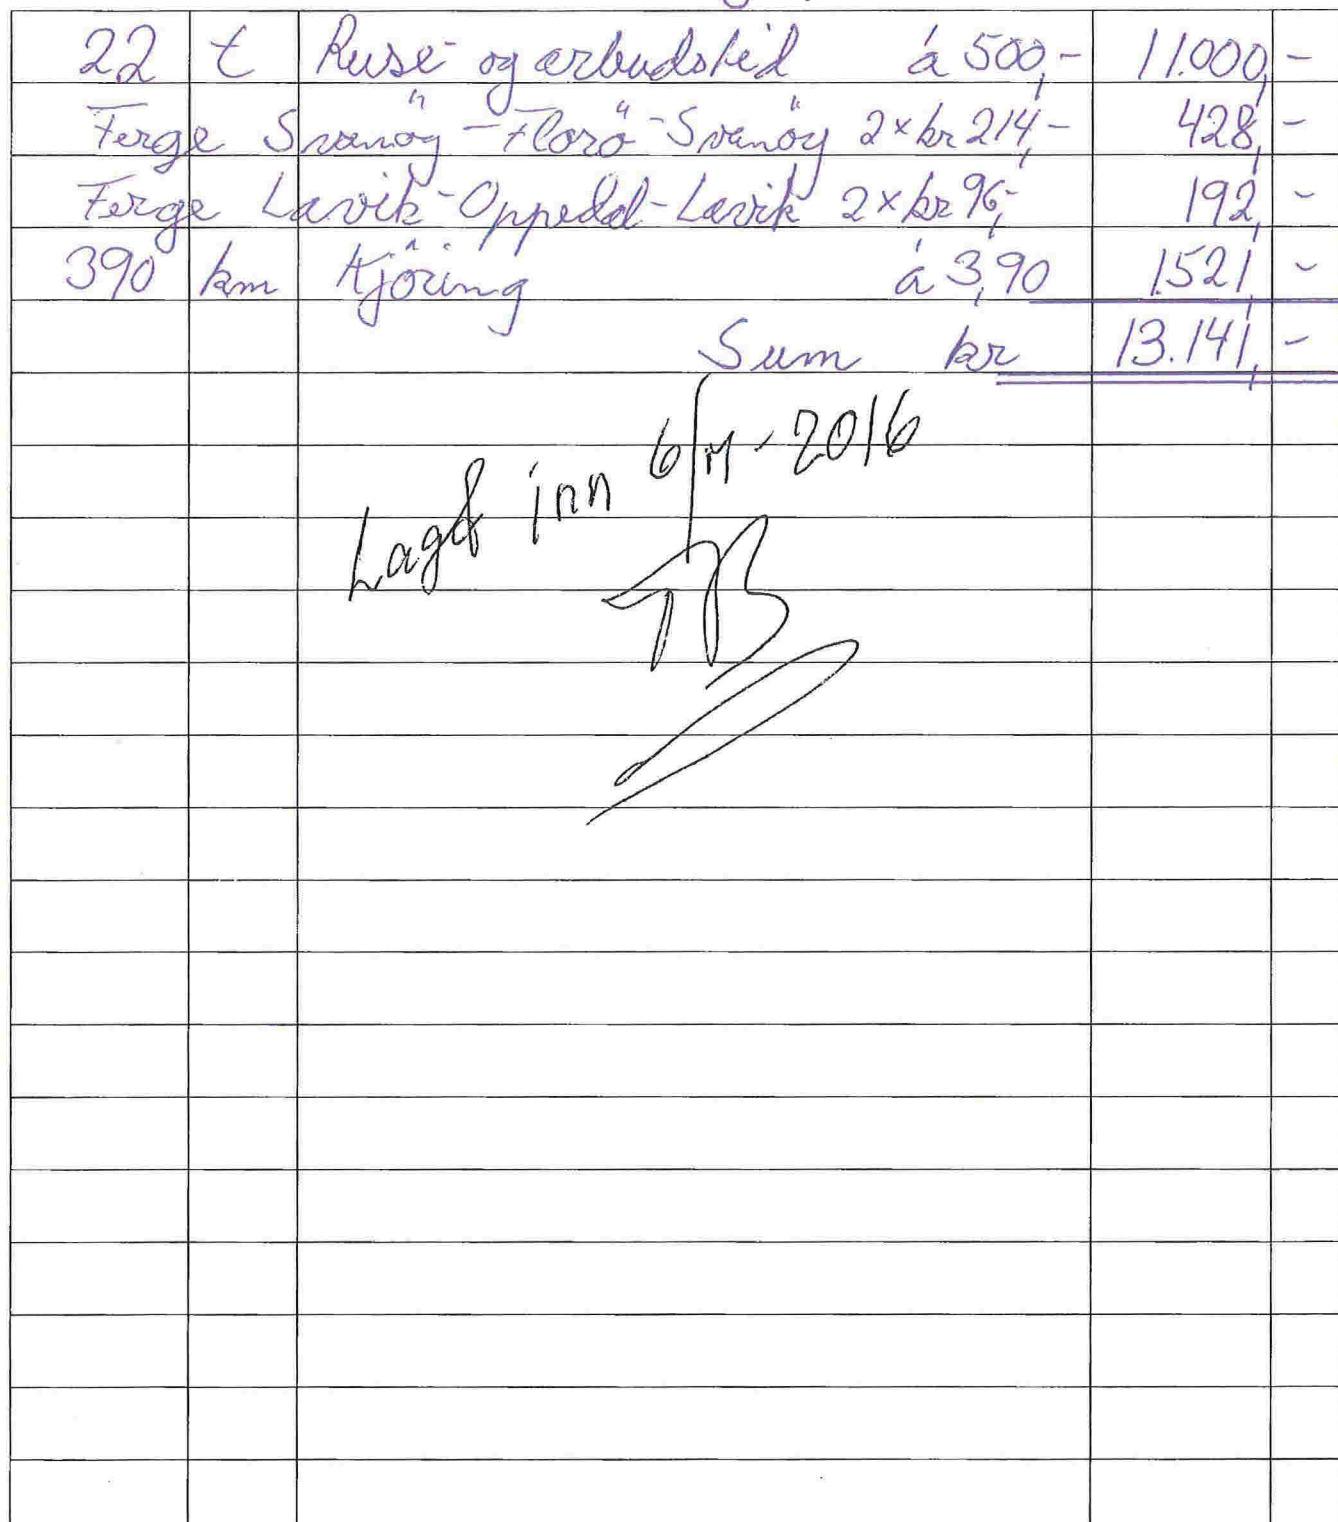 22 t Reise- og arbeidstid á 500,- 11.000,-
Ferge Svanöy-Florö-Svanöy 2×kr 214,- 428,-
Ferge Lavik-Oppedal-Lavik 2×kr 96,- 192,-
390 km Kjöring á 3,90 1.521,-
Sum kr 13.141,-
Lagt inn 6/11-2016